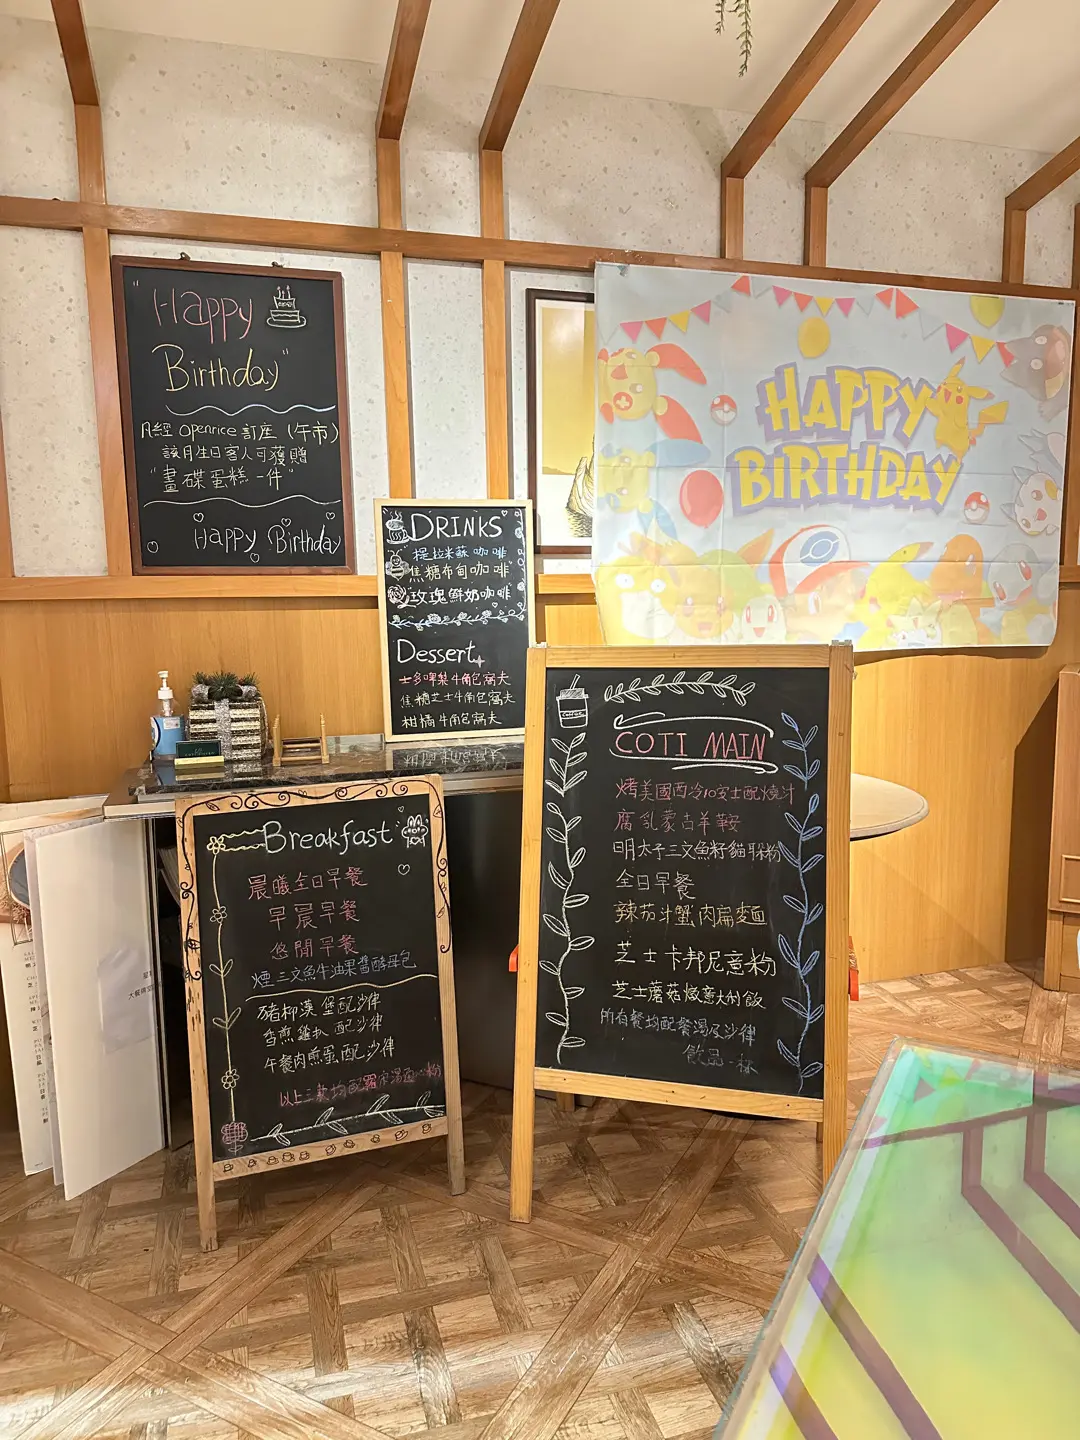 "Happy
Birthday"
凡經 openrice 訂座 (午市)
該月生日客人可獲贈
"畫碟蛋糕一件"
Happy Birthday
DRINKS
提拉米蘇咖啡
焦糖布甸咖啡
玫瑰鮮奶咖啡
Dessert
士多啤梨牛角包窩夫
焦糖芝士牛角包窩夫
柑橘牛角包窩夫
HAPPY
BIRTHDAY
Breakfast
晨曦全日早餐
早晨早餐
悠閒早餐
煙三文魚牛油果醬酵母包
豬柳漢堡配沙律
香煎雞扒配沙律
午餐肉煎蛋配沙律
以上三款均配
COTI MAIN
烤美國西冷10安士配燒汁
腐乳蒙古羊鞍
明太子三文魚籽貓耳朵粉
全日早餐
辣茄汁蟹肉扁麵
芝士卡邦尼意粉
芝士蘑菇燉意大利飯
所有餐均配餐湯及沙律
飲品一杯